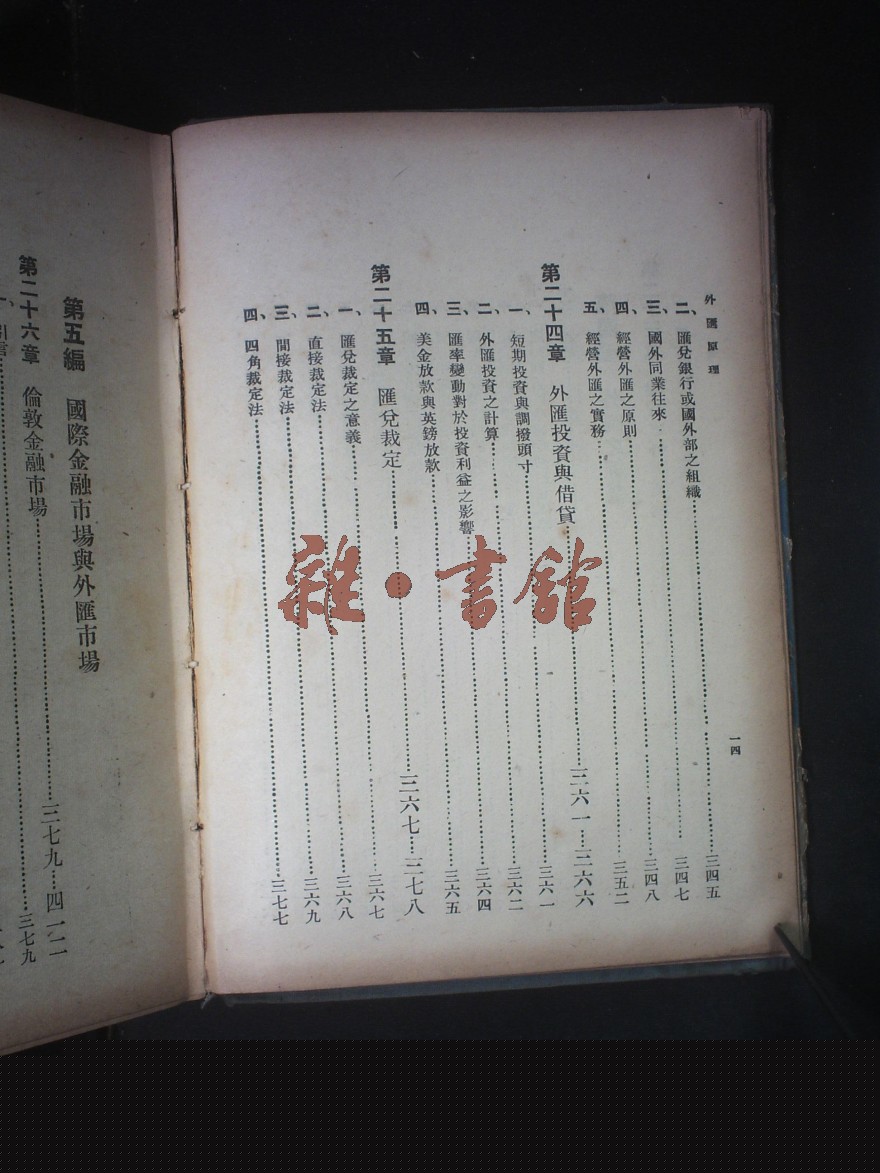 外匯原理
一四
二、匯兌銀行或國外部之組織……三四五
三、國外同業往來……三四七
四、經營外匯之原則……三四八
五、經營外匯之實務……三五二
第二十四章 外匯投資與借貸……三六一…三六六
一、短期投資與調撥頭寸……三六一
二、外匯投資之計算……三六二
三、匯率變動對於投資利益之影響……三六四
四、美金放款與英鎊放款……三六五
第二十五章 匯兌裁定……三六七…三七八
一、匯兌裁定之意義……三六七
二、直接裁定法……三六八
三、間接裁定法……三六九
四、四角裁定法……三七七
第五編 國際金融市場與外匯市場
第二十六章 倫敦金融市場……三七九…四一二
一、引言……三七九
雜·書館